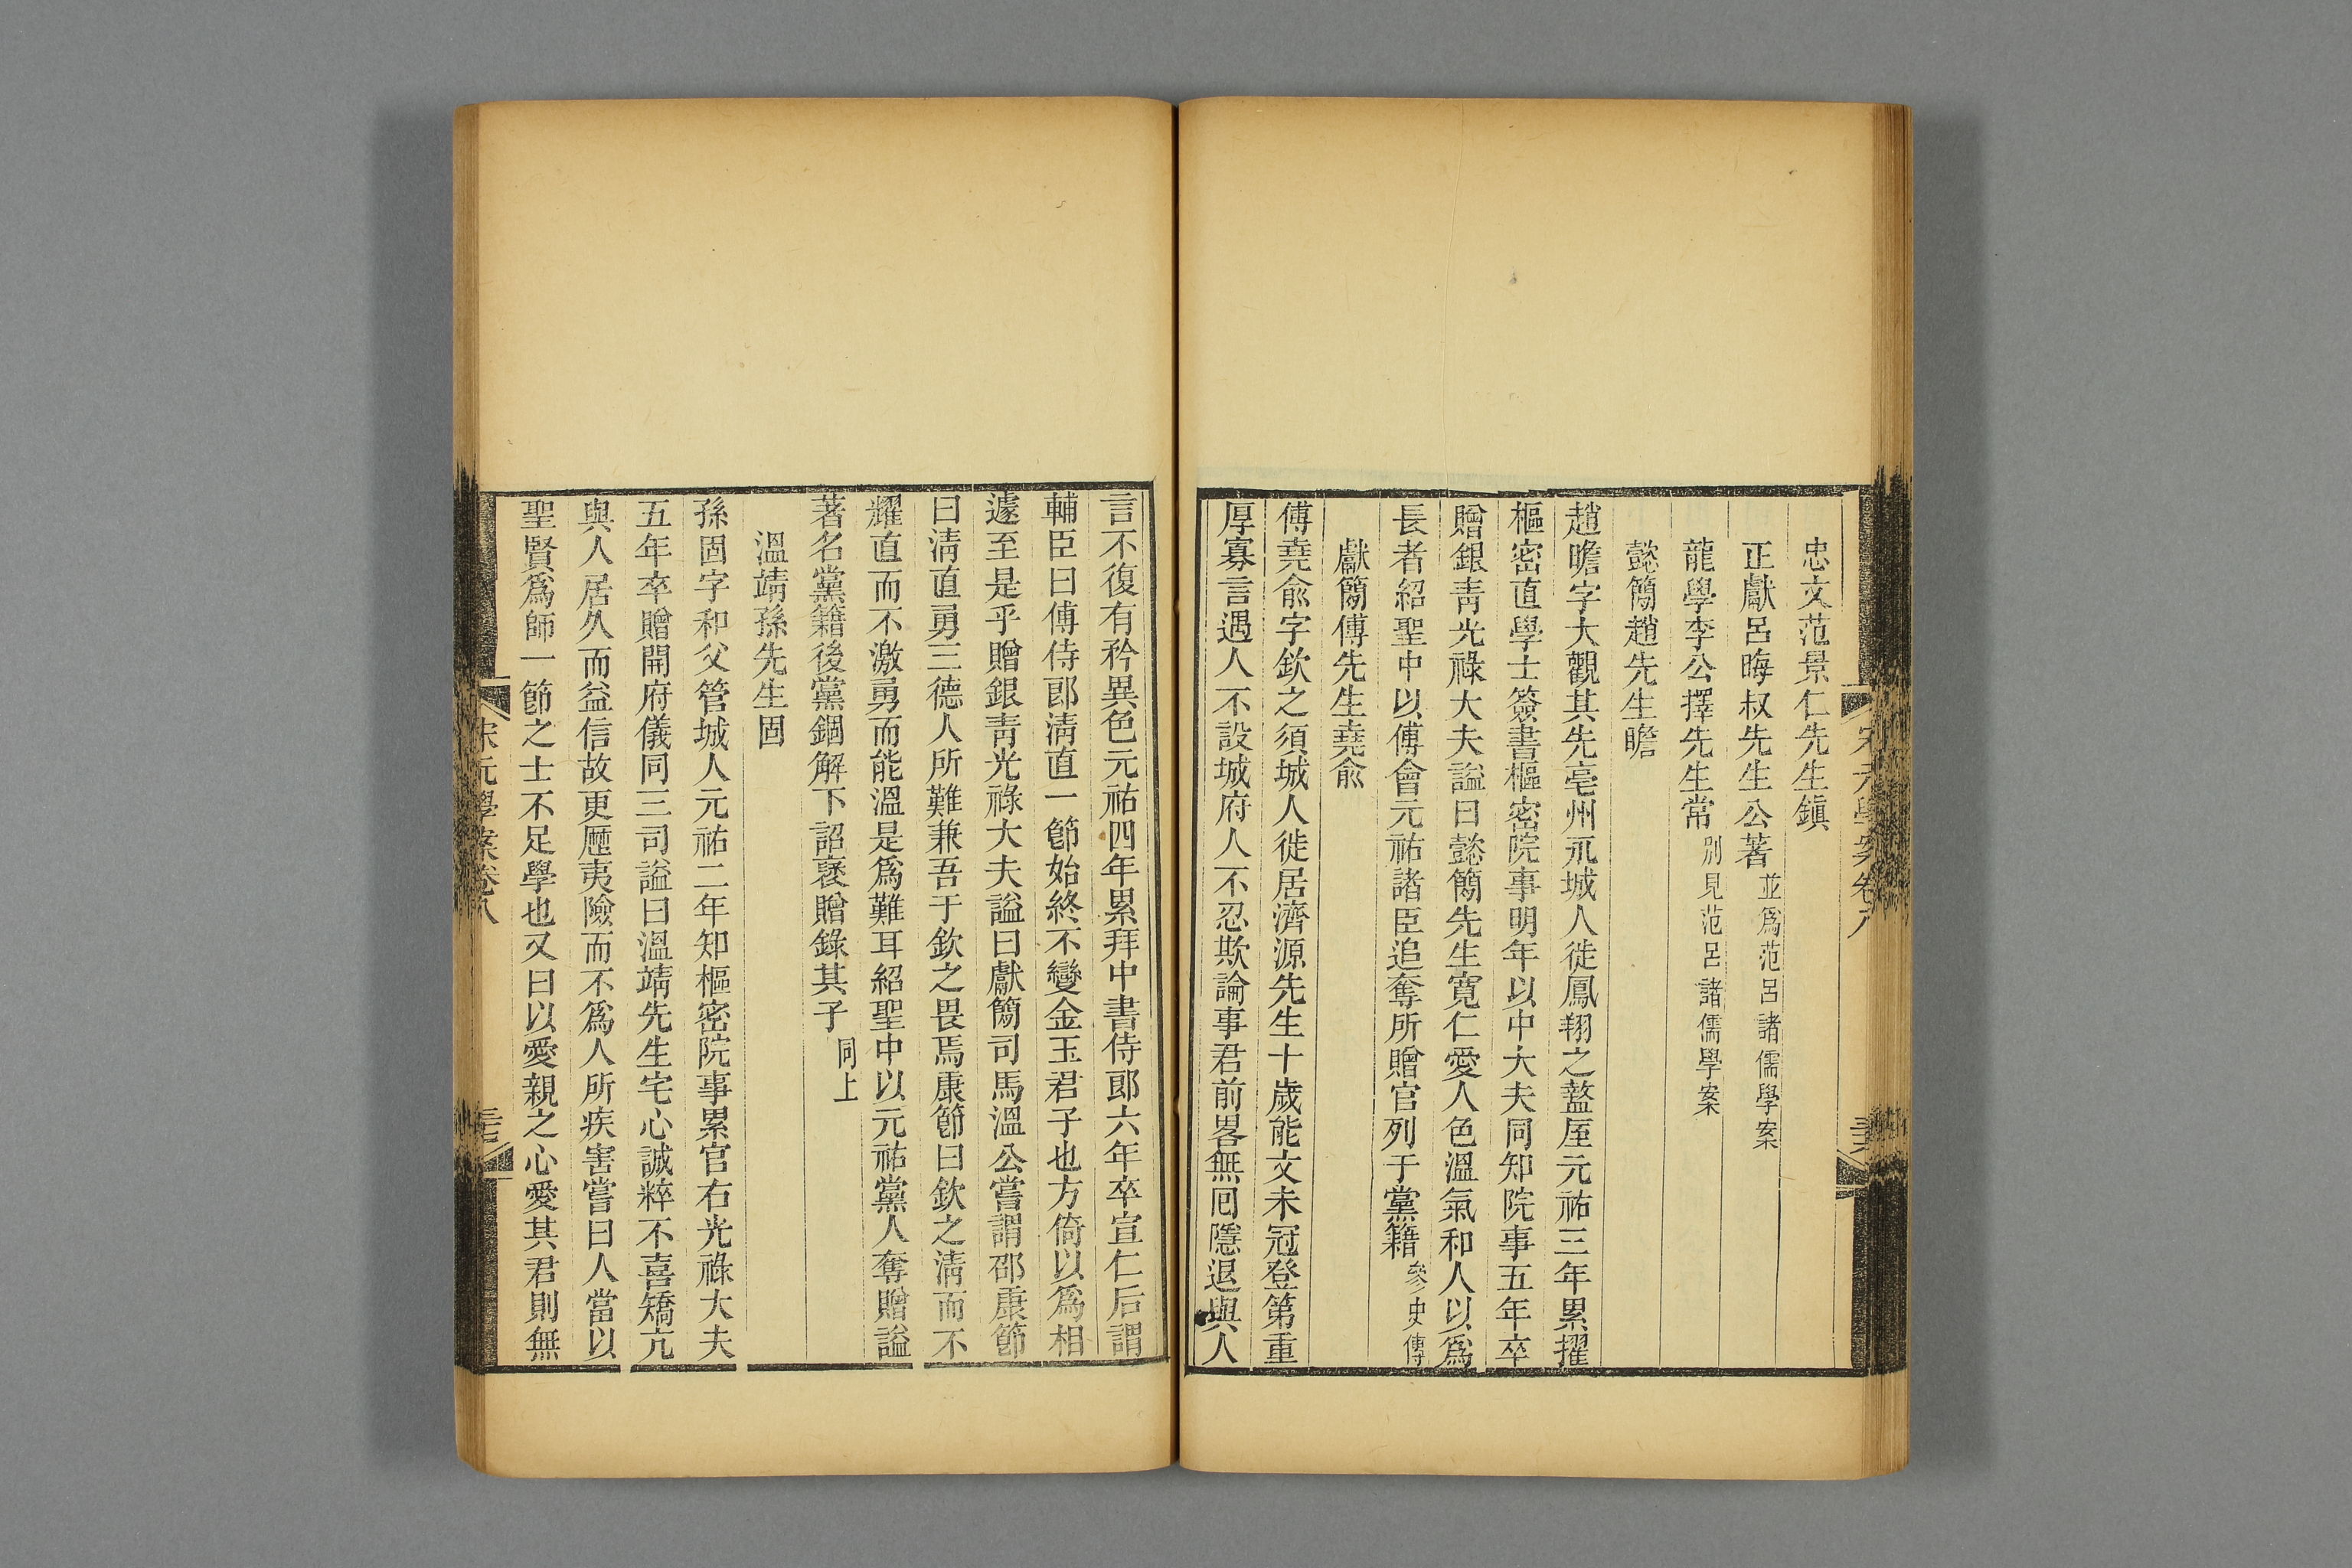 忠文范景仁先生鎭
正獻呂晦叔先生公著並爲范呂諸儒學案
龍學李公擇先生常別見范呂諸儒學案
懿簡趙先生瞻
趙瞻字大觀其先亳州永城人徙鳳翔之盩厔元祐三年累擢
樞密直學士簽書樞密院事明年以中大夫同知院事五年卒
贈銀靑光祿大夫謚曰懿簡先生寬仁愛人色溫氣和人以爲
長者紹聖中以傅會元祐諸臣追奪所贈官列于黨籍參史傳
獻簡傅先生堯俞
傅堯俞字欽之須城人徙居濟源先生十歲能文未冠登第重
厚寡言遇人不設城府人不忍欺論事君前畧無囘隱退與人
言不復有矜異色元祐四年累拜中書侍郎六年卒宣仁后謂
輔臣曰傅侍郎淸直一節始終不變金玉君子也方倚以爲相
遽至是乎贈銀靑光祿大夫謚曰獻簡司馬溫公嘗謂邵康節
曰淸直勇三德人所難兼吾于欽之畏焉康節曰欽之淸而不
耀直而不激勇而能溫是爲難耳紹聖中以元祐黨人奪贈謚
著名黨籍後黨錮解下詔褒贈錄其子同上
溫靖孫先生固
孫固字和父管城人元祐二年知樞密院事累官右光祿大夫
五年卒贈開府儀同三司謚曰溫靖先生宅心誠粹不喜矯亢
與人居久而益信故更歷夷險而不爲人所疾害嘗曰人當以
聖賢爲師一節之士不足學也又曰以愛親之心愛其君則無
宋元學案卷八